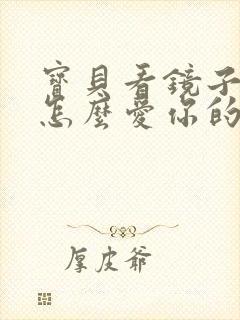 寶貝看鏡子
怎麼愛你的
厚皮爺